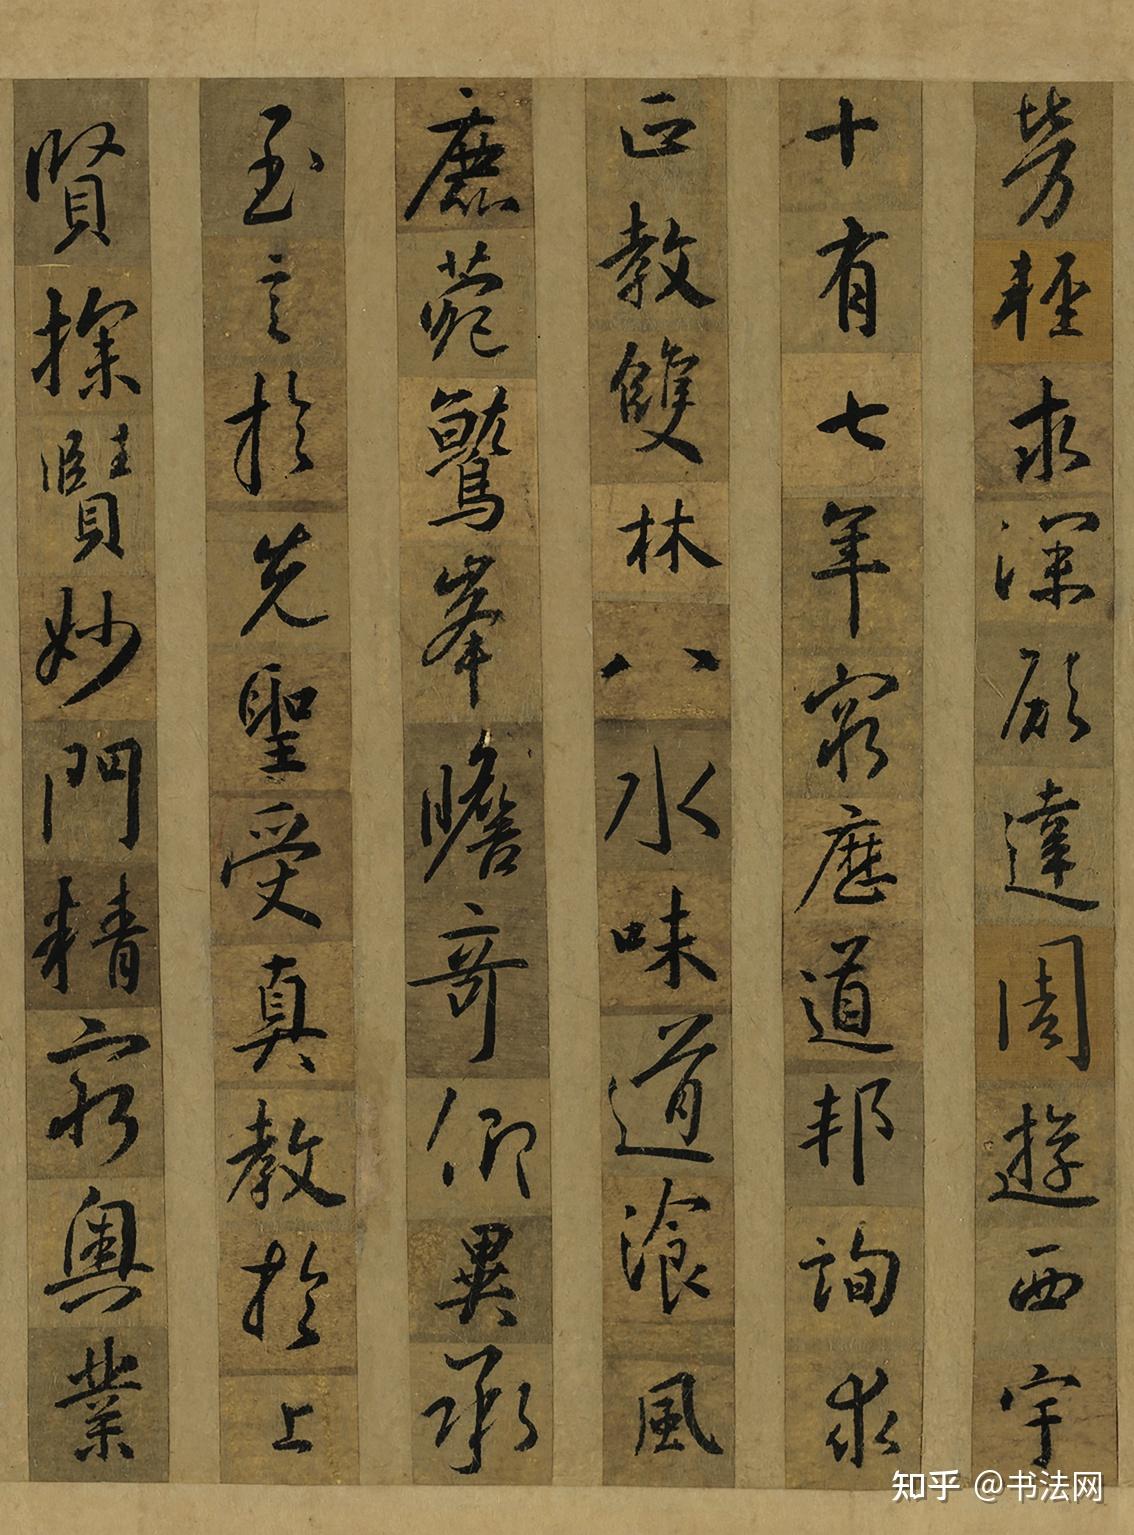 勞輕求深願達周遊西宇
十有七年窮歷道邦詢求
正教雙林八水味道飡風
鹿菀鷲峯瞻奇仰異承
至言於先聖受真教於上
賢探賾妙門精窮奧業
知乎 @书法网